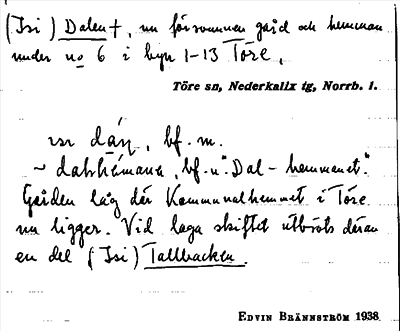 (Isi) Dalen †, nu försvunnen gård och hemman
under no 6 i byn 1-13 Töre.
Töre sn, Nederkalix tg, Norrb. l.
bf. m.
~ bf. n. "Dal-hemmanet".
Gården låg där Kommunalhemmet i Töre
nu ligger. Vid laga skiftet utbröts däran
en del (Isi) Tallbacken.
EDVIN BRÄNNSTRÖM 1938